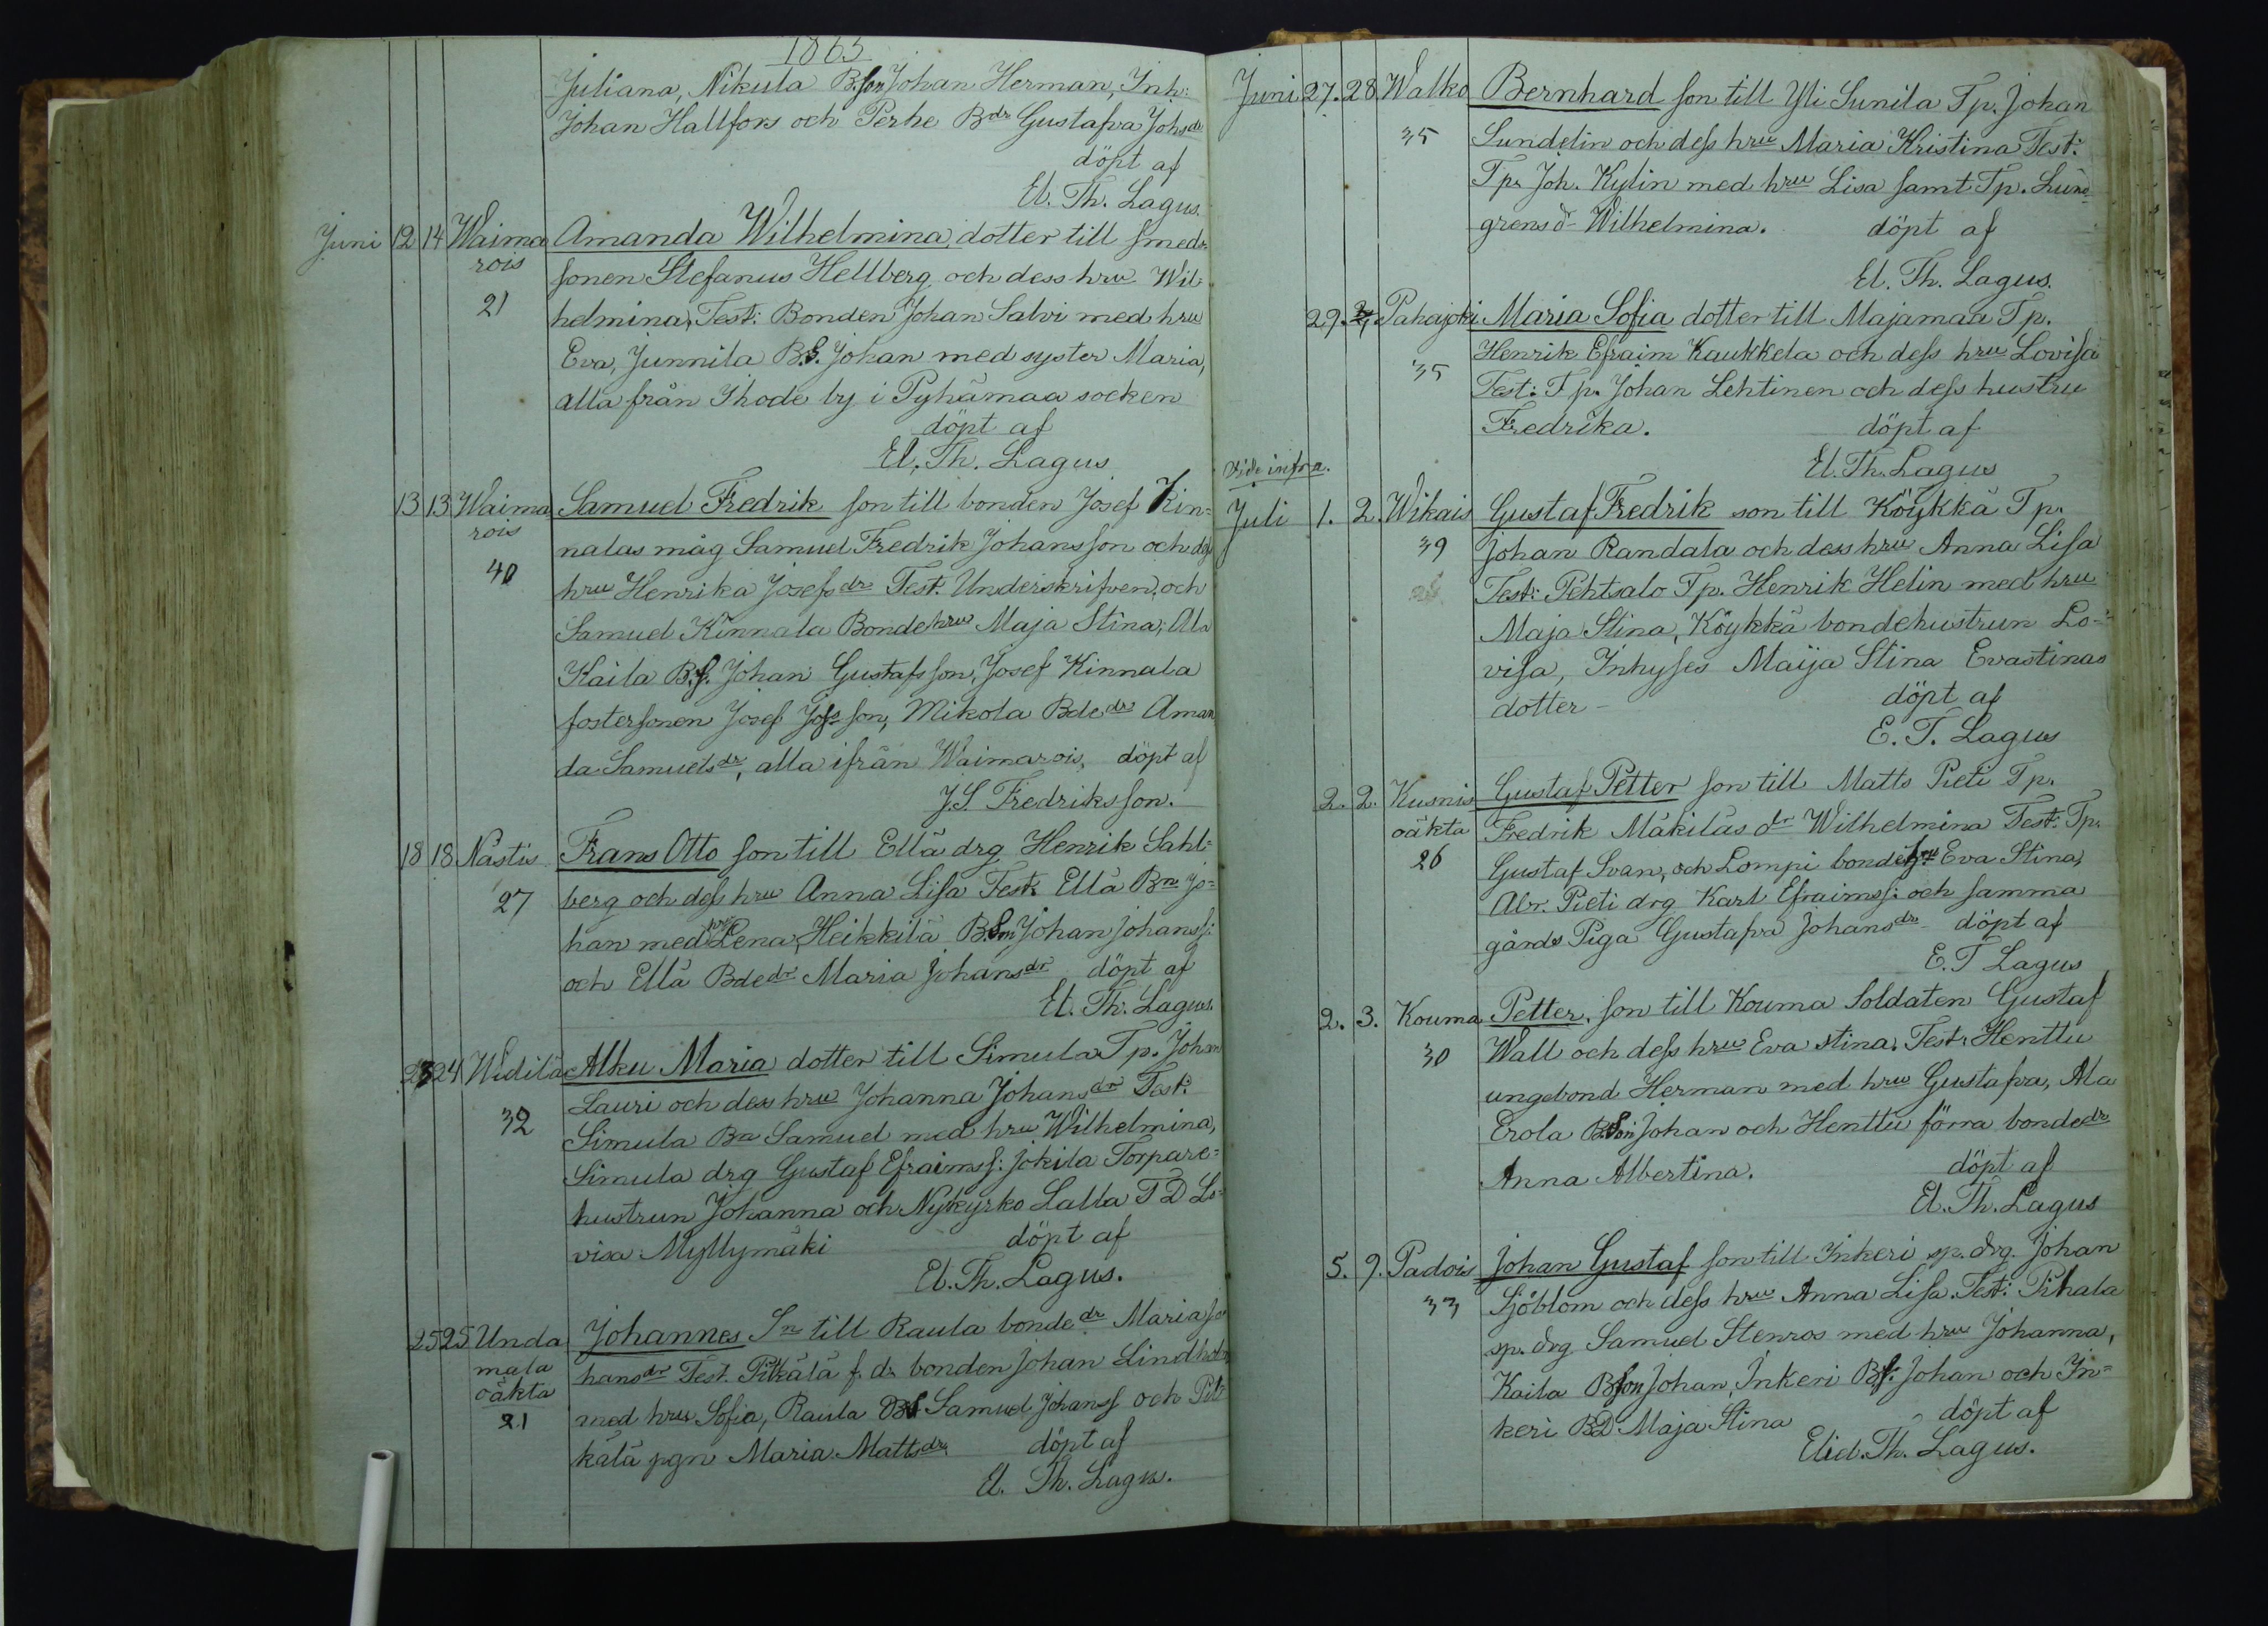 1863
Juliana, Nikula B.son Johan Herman, Inh:
Johan Hallfors och Perhe Bdr Gustafva Johsdr
döpt af
El. Th. Lagus.
Juni 12 14 Waima Amanda Wilhelmina, dotter till smeds
rois
sonen Stefanus Hellberg och dess hru Wil-
21 helmina, Test: Bonden Johan Salvi med hru
Eva, Junnila B.S. Johan med syster Maria,
alla från Ihode by i Pyhämaa socken
döpt af
El. Th. Lagus
13 13 Waima Samuel Fredrik son till bonden Josef Kin=
rois
nalas måg Samuel Fredrik Johansson och dess
40 hru Henrika Josefsdr Test. Underskrifven, och
Samuel Kinnala Bondehru Maja Stina, Ala
Kaila B.S. Johan Gustafsson, Josef Kinnala
fostersonen Josef Jossson, Mikola Bdedr Aman
da Samuelsdr, alla ifrån Waimarois, döpt af
J.S. Fredriksson.
18 18 Nästis Frans Otto son till Ellä drg Henrik Sahl=
27 berg och dess hru Anna Lisa Test. Ellä Bn Jo=
han med hru Lena, Heikkilä B.Son Johan Johanss:
och Ellä Bdedr Maria Johansdr döpt af
El. Th. Lagus.
23 24 Widilä Alku Maria dotter till Simula Tp. Johan
Lauri och dess hru Johanna Johansdr Test:
32 Simula Bn Samuel med hru Wilhelmina,
Simula drg Gustaf Efraimss: Jokila Torpare=
hustrun Johanna och Nykyrko Lalla T D Lo=
visa Myllymäki döpt af
El. Th. Lagus.
25 25 Unda Johannes Sn till Raula bondedr Maria Jo
mala
hansdr Test. Pitkälä f.d. bonden Johan Lind
oäkta
21 med hru Sofia, Raula BS Samuel Johanss och Pit
kälä pgn Maria Mattsdr döpt af
El. Th. Lagus.
Juni 27. 28 Walko Bernhard son till Yli Sunila Tp. Johan
35 Sundelin och dess hru Maria Kristina Test:
Tp. Joh. Kylin med hru Lisa samt Tp. Lund
grens dr Wilhelmina. döpt af
El. Th. Lagus.
29. Pahajoki Maria Sofia dotter till Majamaa Tp.
35 Henrik Efraim Kaukkela och dess hru Lovisa
Test: Tp. Johan Lehtinen och dess hustru
Fredrika. döpt af
El. Th. Lagus
Vide infra.
Juli 1. 2. Wikais Gustaf Fredrik son till Köykkä Tp.
39 Johan Randala och dess hru Anna Lisa
Test: Pehtsalo Tp. Henrik Helin med hru
Maja Stina, Köykkä bondehustrun Lo=
visa, Inhyses Maija Stina Evastinas
dotter – döpt af
E. T. Lagus
2. 2. Kusnis Gustaf Petter son till Matts Pieti Tp.
oäkta Fredrik Mäkiläs dr Wilhelmina Test: Tp.
26 Gustaf Svan, och Lompi bondehru Eva Stina,
Abr. Pieti drg Karl Efraimss: och samma
gårds Piga Gustafva Johansdr döpt af
E. T Lagus
2. 3. Kouma Petter, son till Kouma Soldaten Gustaf
30 Wall och dess hru Eva Stina. Test: Henttu
ungebond Herman med hru Gustafva, Ala
Erola B.Son Johan och Henttu förra bondedr
Anna Albertina. döpt af
El. Th. Lagus
5. 9. Padois Johan Gustaf son till Inkeri sp. drg. Johan
33 Sjöblom och dess hru Anna Lisa. Test: Pihala
sp. drg Samuel Stenros med hru Johanna,
Kaila Bson Johan, Inkeri Bs. Johan och In=
keri BD Maja Stina döpt af
Elid. Th. Lagus.